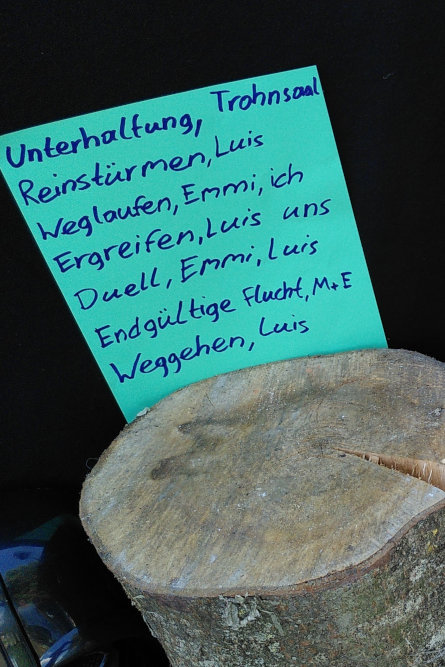 Unterhaltung, Trohnsaal
Reinstürmen, Luis
Weglaufen, Emmi, ich
Ergreifen, Luis uns
Duell, Emmi, Luis
Endgültige Flucht, M+E
Weggehen, Luis